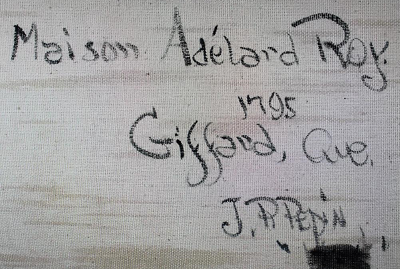 Maison Adélard Roy.
1795
Giffard, Que.
J. P. PEPIN